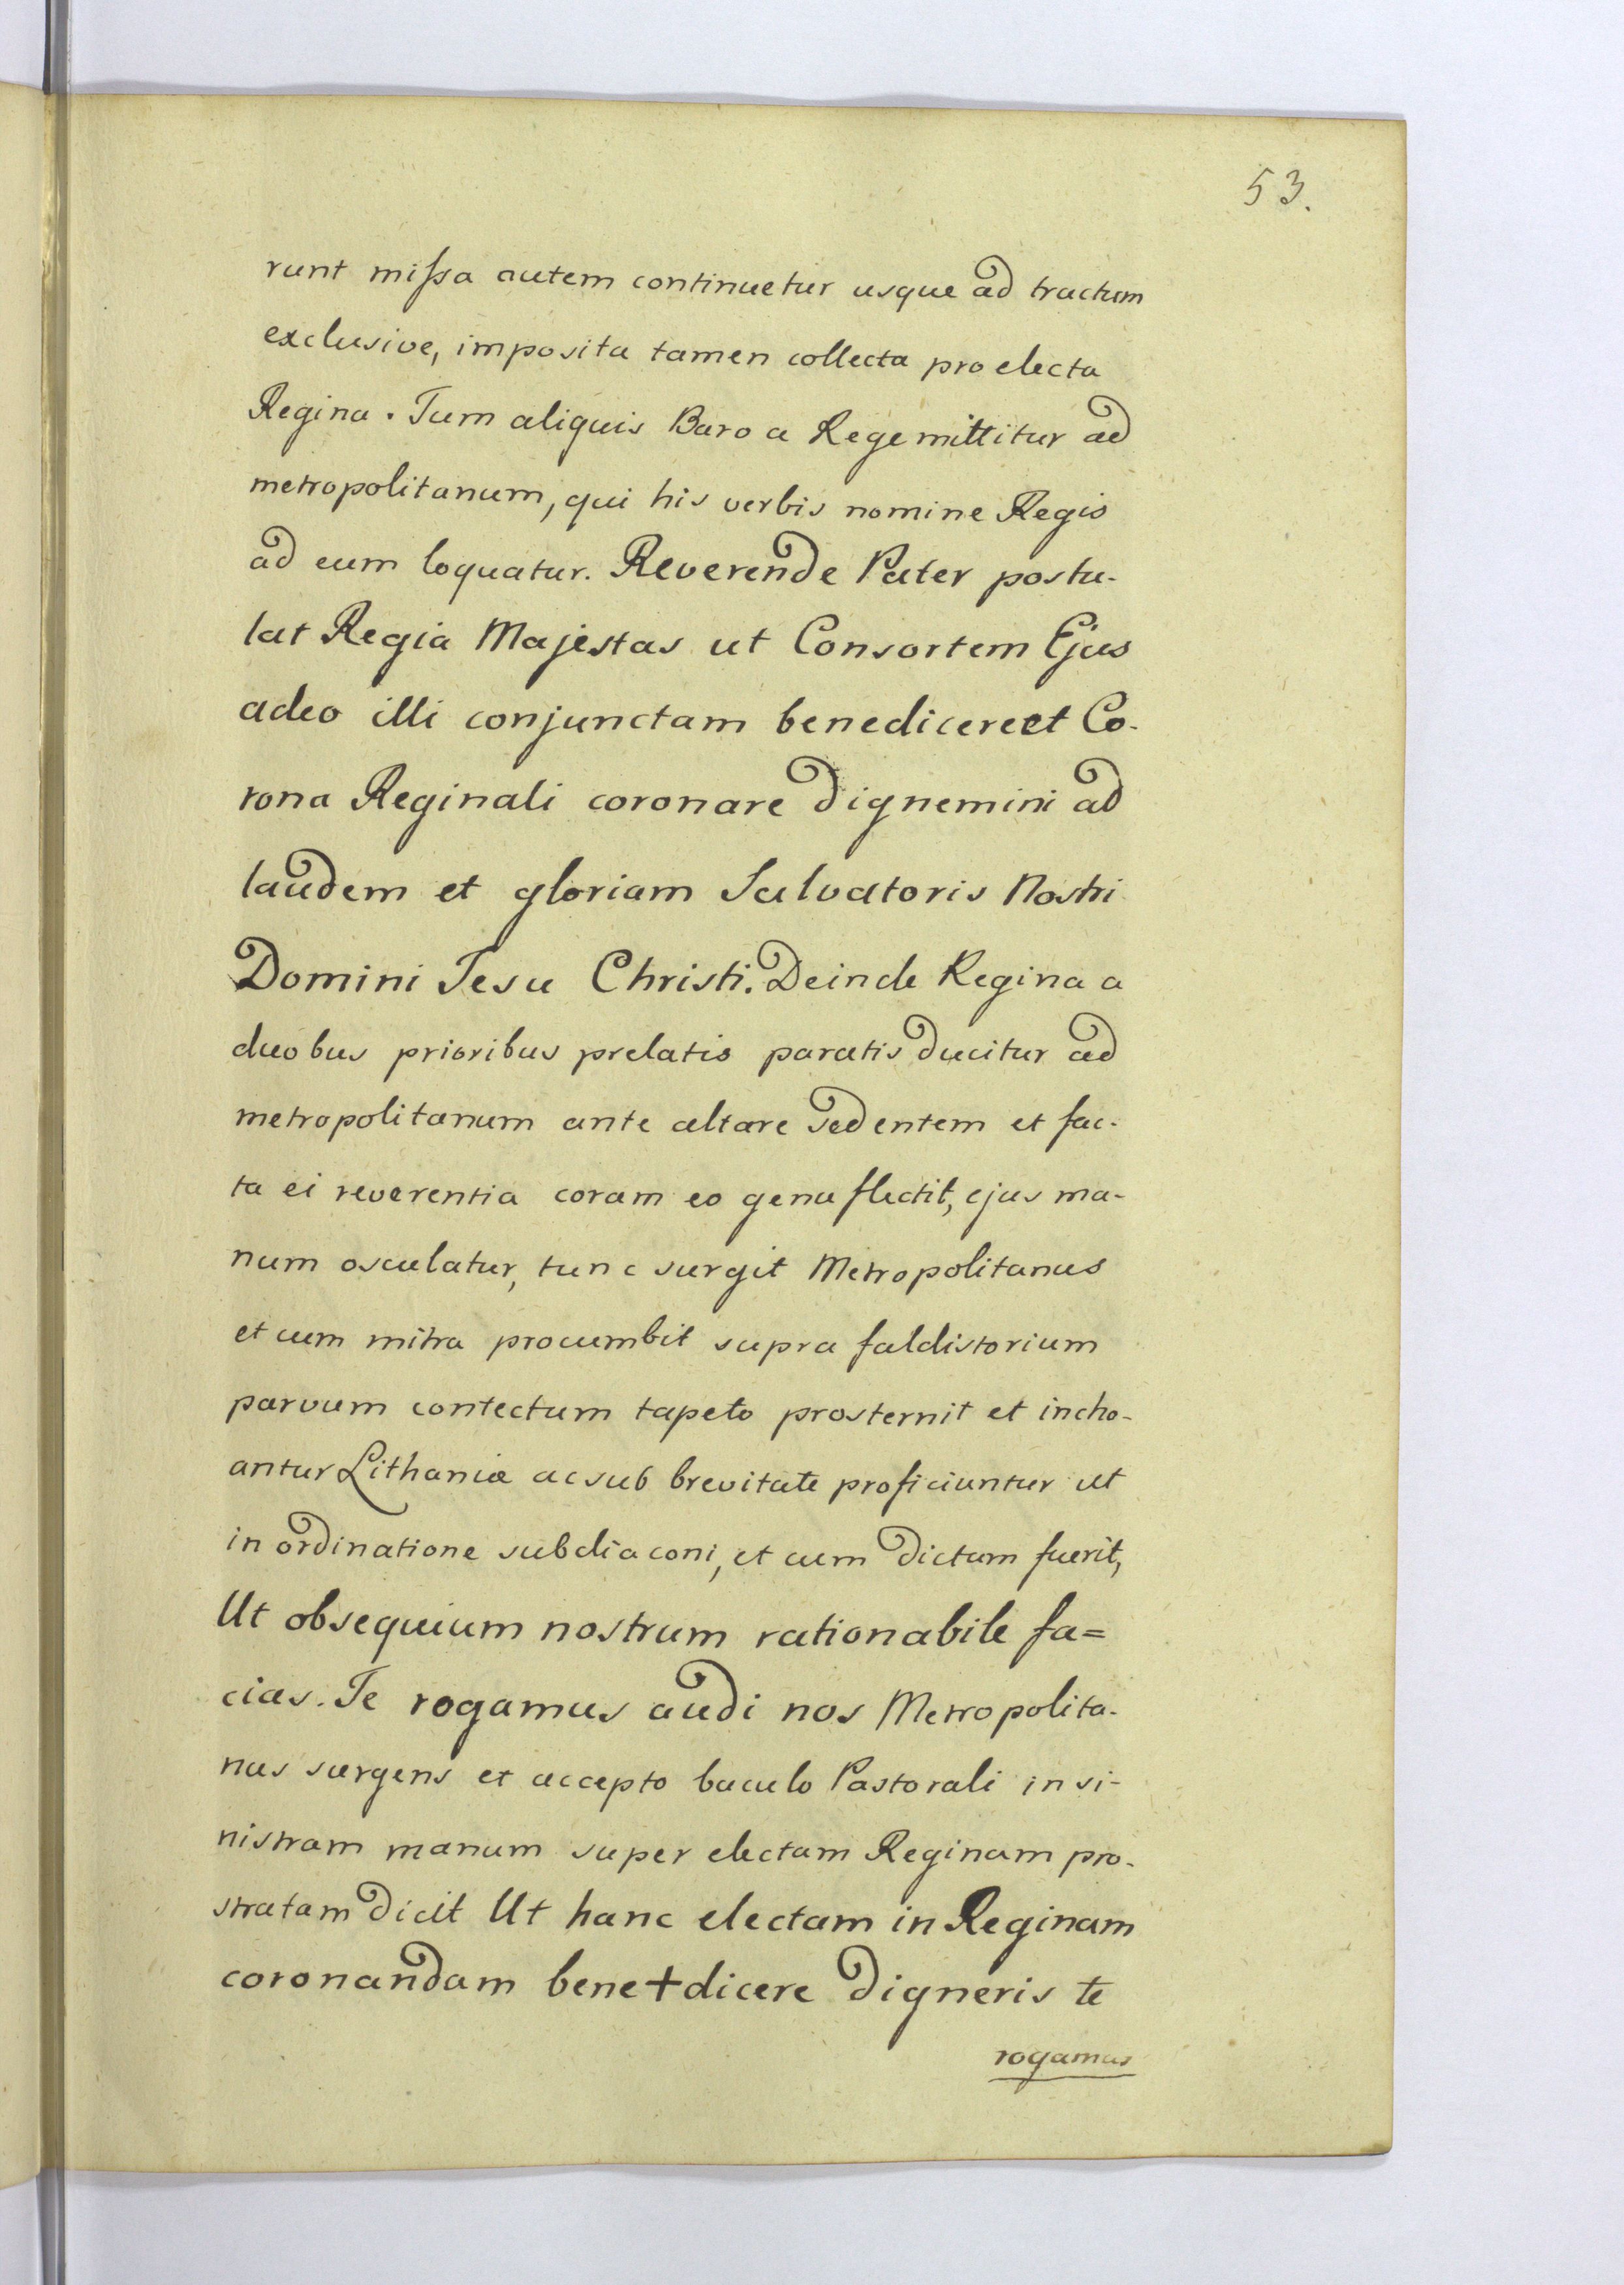 53.
runt missa autem continuetur usque ad tractum
exclusive, imposita tamen collecta pro electa
Regina. Tum aliquis Baro a Rege mittitur ad
metropolitanum, qui his verbis nomine Regis
ad eum loquatur. Reverende Pater postu-
lat Regia Majestas ut Consortem Ejus
adeo illi conjunctam benedicere et Co-
rona Reginali coronare dignemini ad
laudem et gloriam Salvatoris Nostri
Domini Jesu Christi. Deinde Regina a
duobus prioribus prelatis paratis ducitur ad
metropolitanum ante altare sedentem et fac-
ta ei reverentia coram eo genuflectit, ejus ma-
num osculatur, tunc surgit Metropolitanus
et cum mitra procumbit supra faldistorium
parvum contectum tapeto prosternit et incho-
antur Lithaniæ ac sub brevitate proficiuntur ut
in ordinatione subdiaconi, et cum dictum fuerit,
Ut obsequium nostrum rationabile fa=
cias. Te rogamus audi nos Metropolita-
nus surgens et accepto baculo Pastorali in si-
nistram manum super electam Reginam pro-
stratam dicit Ut hanc electam in Reginam
coronandam bene+dicere digneris te
rogamus